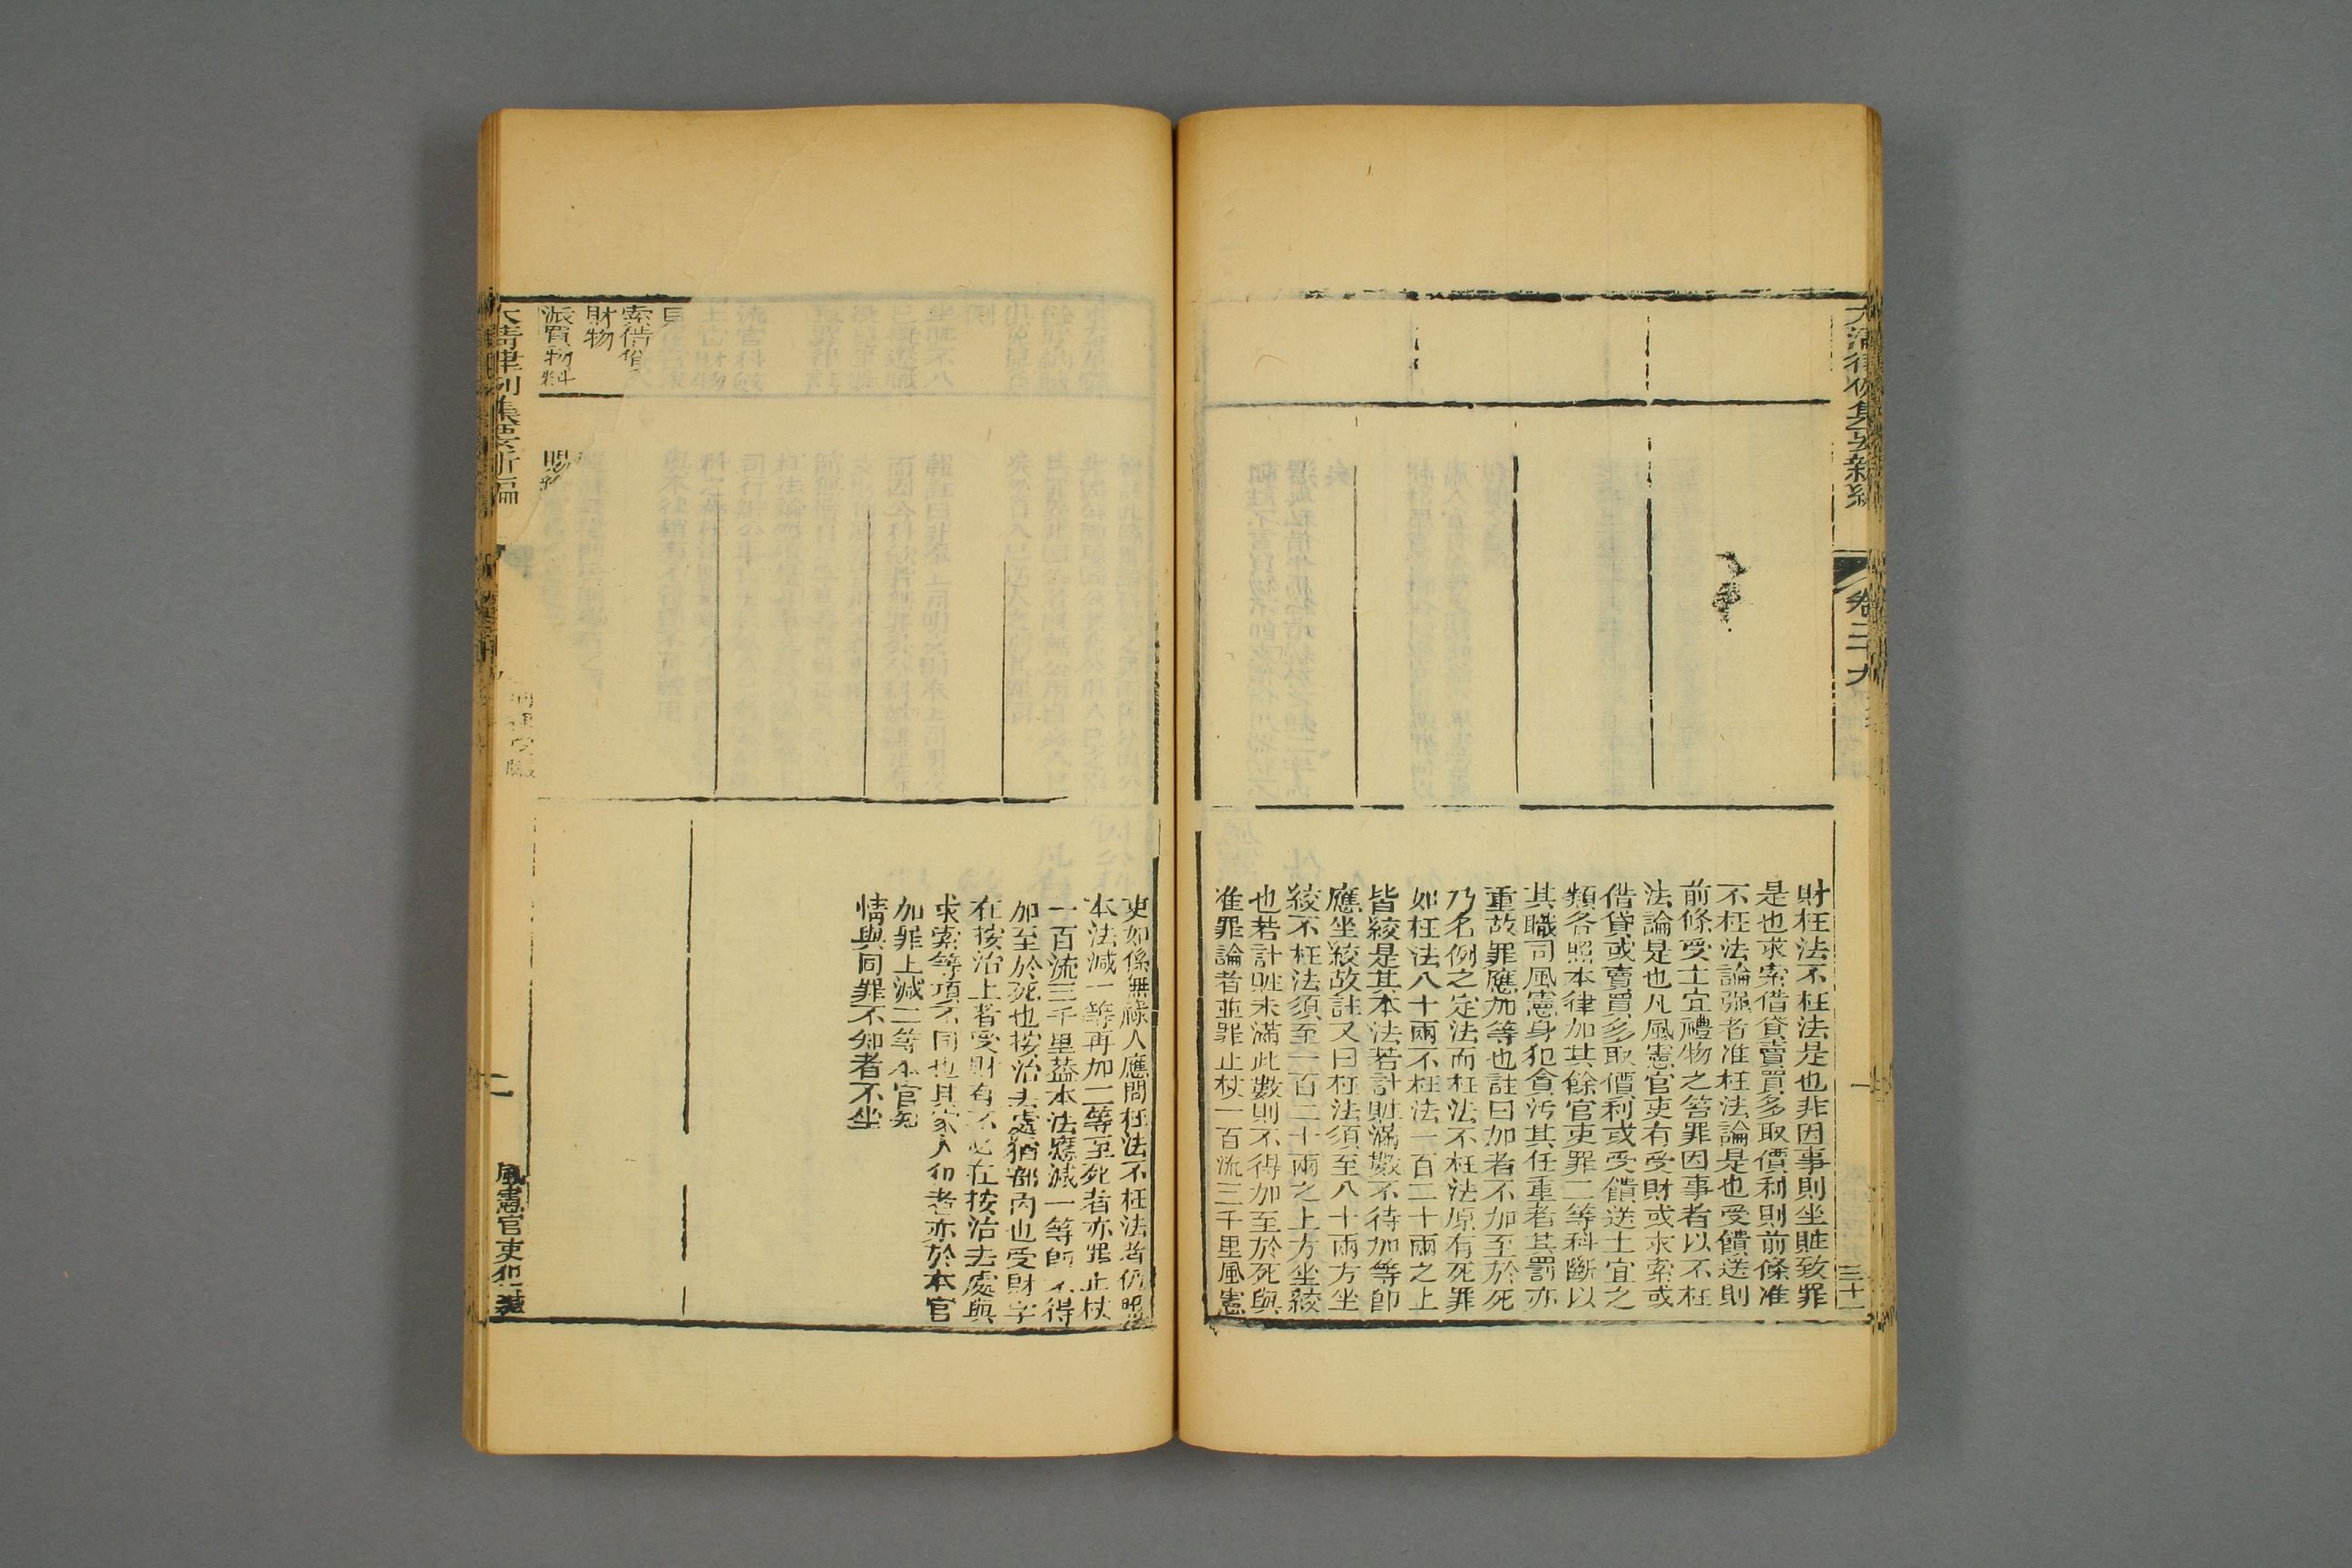 卷二十九
三十一
財枉法不枉法是也非因事則坐贓致罪
是也求索借貸賣買多取價利則前條准
不枉法論强者准枉法論是也受饋送則
前條受士宜禮物之笞罪因事者以不枉
法論是也凡風憲官吏有受財或求索或
借貸或賣買多取價利或受饋送土宜之
類各照本律加其餘官吏罪二等科斷以
其職司風憲身犯貪污其任重者其罰亦
重故罪應加等也註曰加者不加至於死
乃名例之定法而枉法不枉法原有死罪
如枉法八十兩不枉法一百二十兩之上
皆絞是其本法若計贓滿數不待加等卽
應坐絞故註又曰枉法須至八十兩方坐
絞不枉法須至一百二十兩之上方坐絞
也若計贓未滿此數則不得加至於死與
准罪論者並罪止杖一百流三千里風憲
吏如係無祿人應問枉法不枉法者仍照
本法減一等再加二等至死者亦罪止杖
一百流三千里葢本法應減一等師不得
加至於死也按治去處猶部內也受財字
在按治上者受財有不必在按治去處與
求索等項不同也其家人犯者亦於本官
加罪上減二等本官知
情與同罪不知者不坐
索借貸
財物
派買物料
大清律例集要新編
風憲官吏犯贓